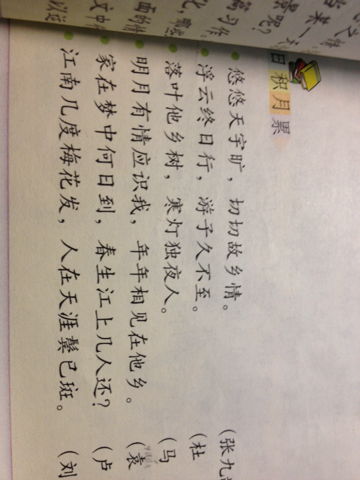 日积月累
悠悠天宇旷，切切故乡情。(张九
浮云终日行，游子久不至。(杜
落叶他乡树，寒灯独夜人。(马
明月有情应识我，年年相见在他乡。(袁
家在梦中何日到，春生江上几人还？(卢
江南几度梅花发，人在天涯鬓已斑。(刘